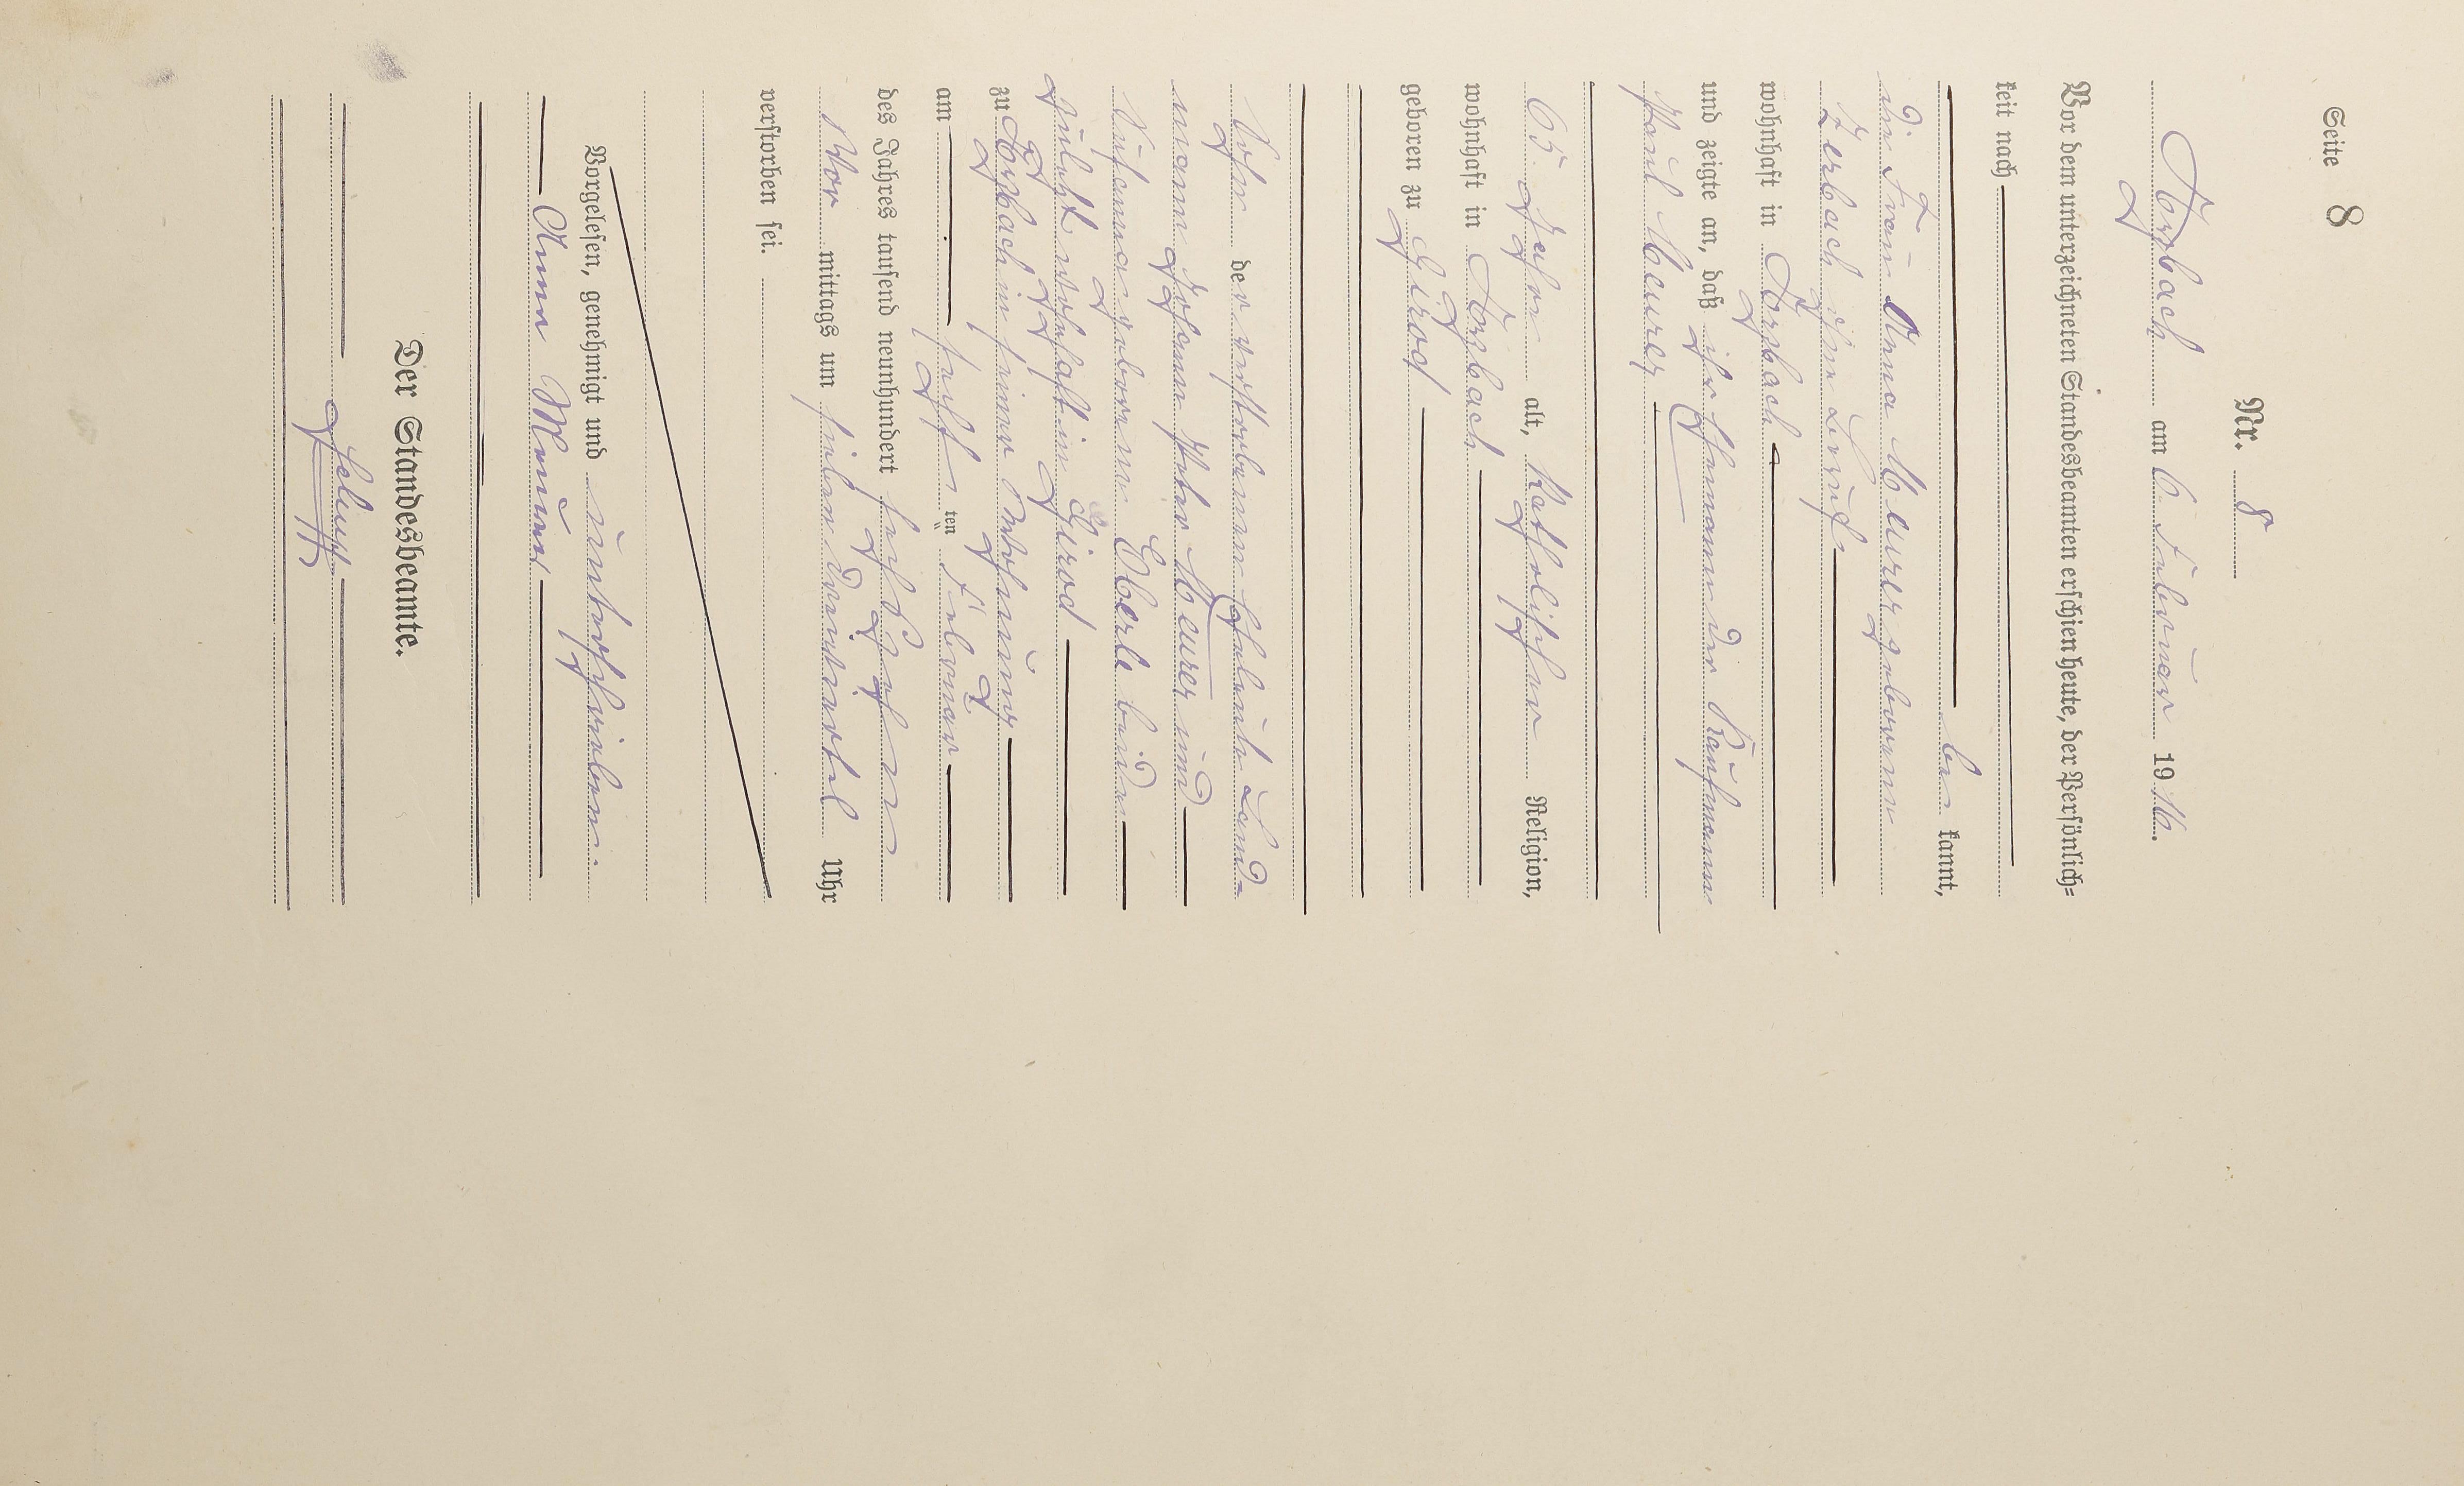 Seite 8
Nr. 8
Torzbach am 6. Februar 1916.
Vor dem unterzeichneten Standesbeamten erschien heute, der Persönlich-
keit nach
be kannt,
die Frau Anna Meurer geborene
Zerbach ohne Beruf
wohnhaft in
und zeigte an, daß ihr Ehemann der Kaufmann
Paul Meurer
65 Jahre alt, Katholischer Religion,
wohnhaft in
geboren zu Girod
Sohn der verstorbenen Eheleute Land-
mann Johann Peter Meurer und
Susanna geborene Eberle beide
zuletzt wohnhaft in Girod
zu in seiner Wohnung
am sechsten Februar
des Jahres tausend neunhundert sechszehn
Vor mittags um sieben dreiviertel Uhr
verstorben sei.
Vorgelesen, genehmigt und unterschrieben.
Anna Meurer
Der Standesbeamte.